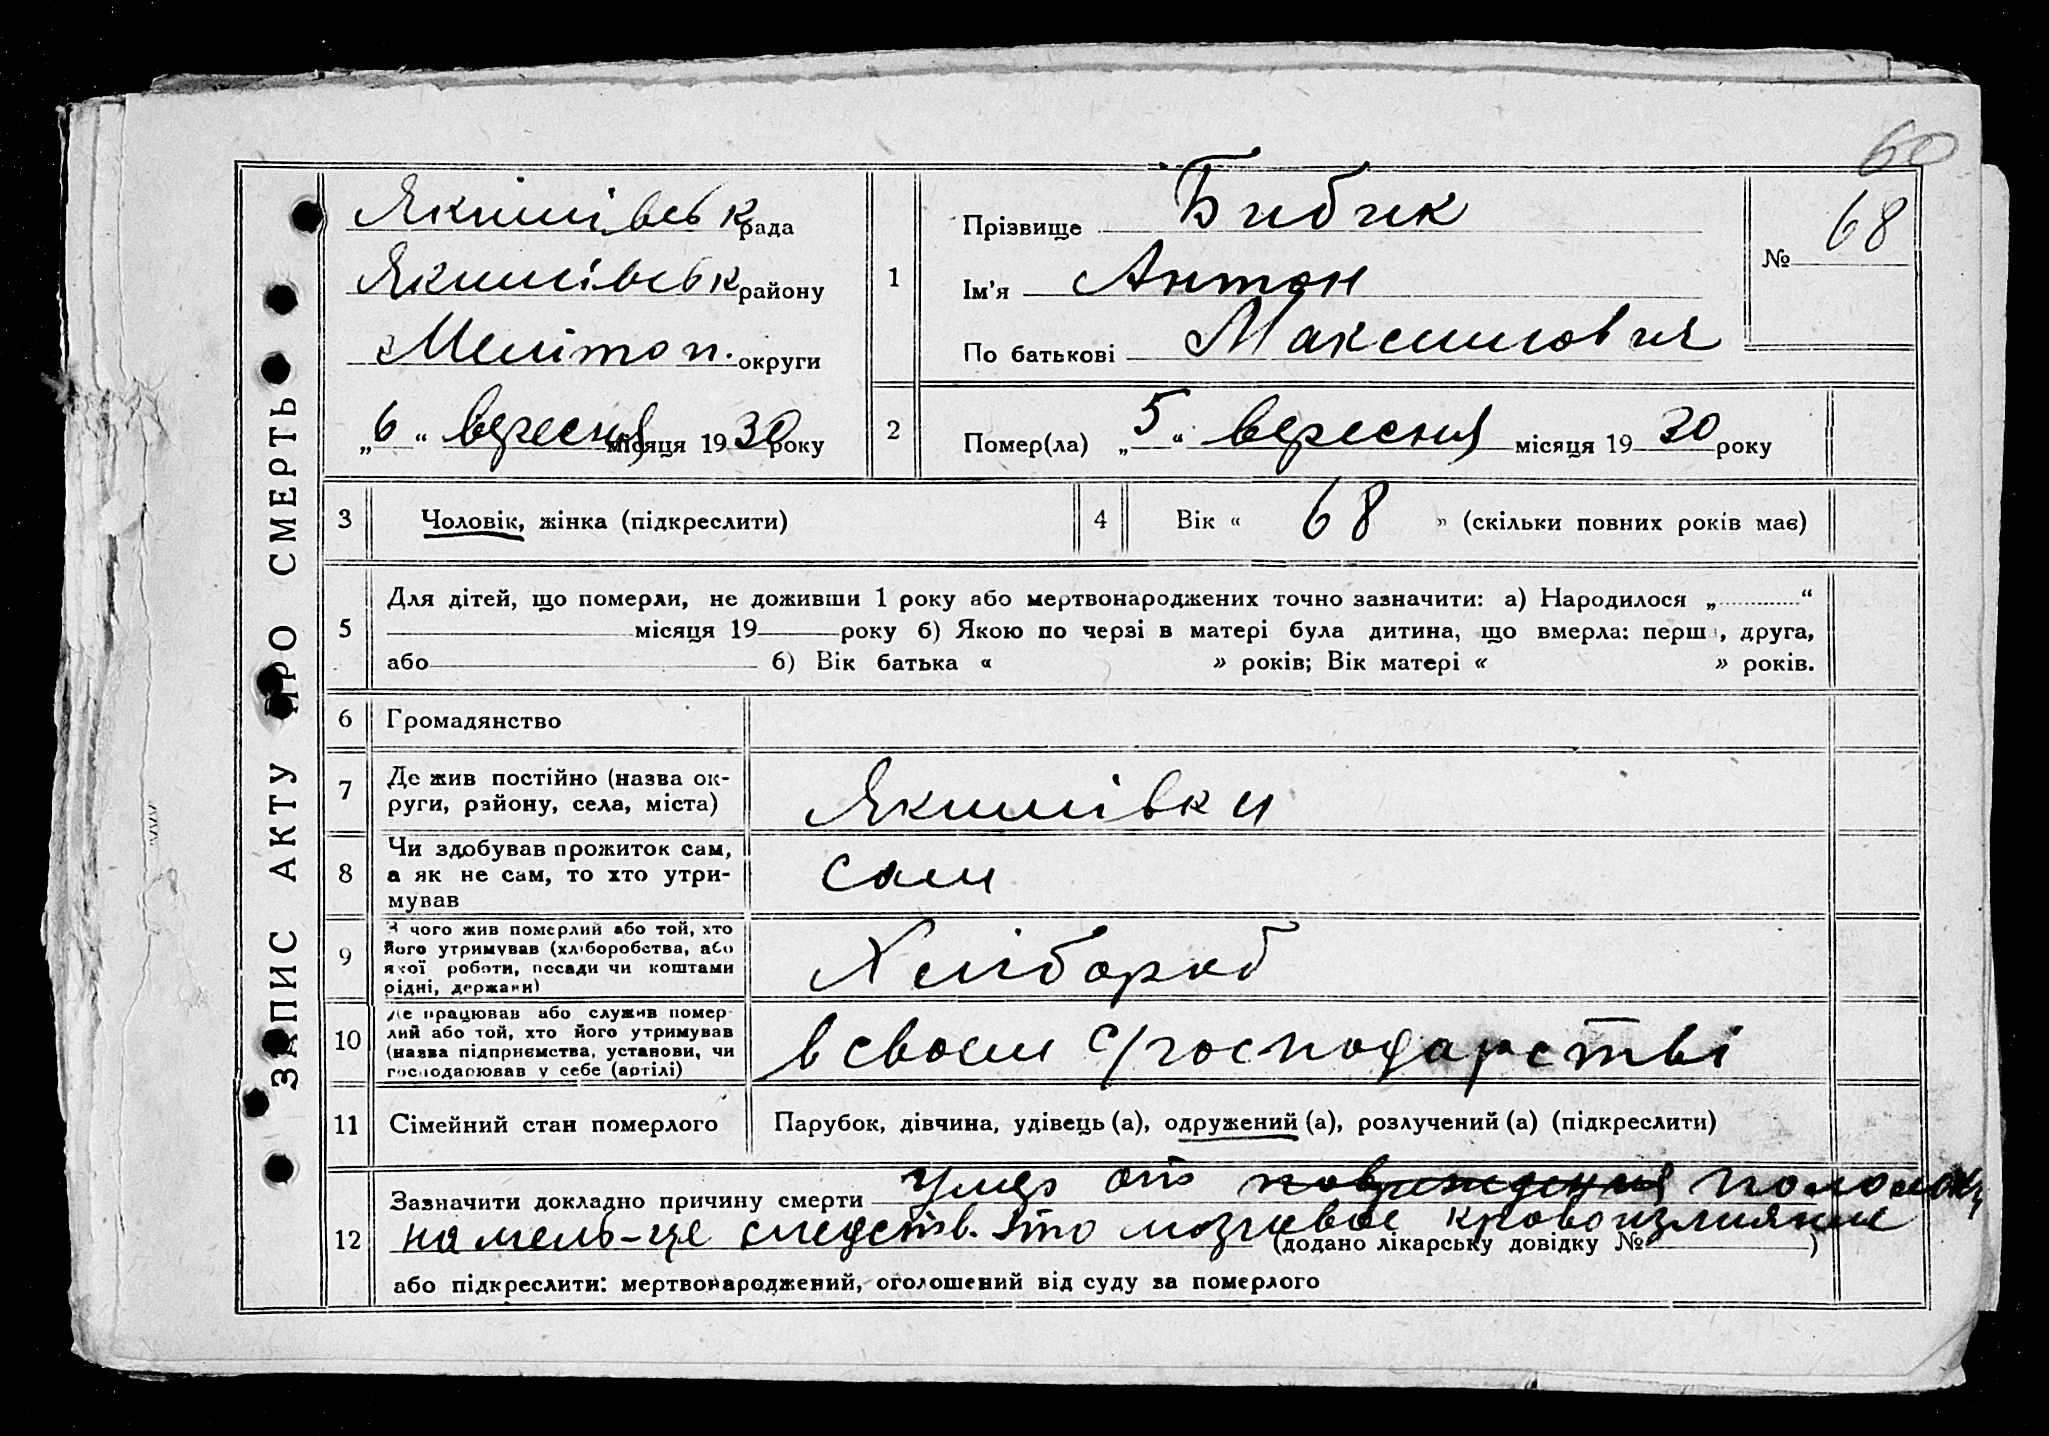 60
ЗАПИС АКТУ ПРО СМЕРТЬ
Якимівськ рада
Якимівськ району
Мелітоп. округи
„6“ вересня місяця 1930 року
1
Прізвище Бибик
Ім'я Антон
По батькові Максимович
№ 68
2
Помер(ла) „5“ вересня місяця 1930 року
3 Чоловік, жінка (підкреслити)
4 Вік « 68 » (скільки повних років має)
5
Для дітей, що померли, не доживши 1 року або мертвонароджених точно зазначити: а) Народилося „ “
місяця 19 року б) Якою по черзі в матері була дитина, що вмерла: перш , друга,
або б) Вік батька « » років; Вік матері « » років.
6 Громадянство
7 Де жив постійно (назва ок-
руги, району, села, міста)
Якимівки
8 Чи здобував прожиток сам,
а як не сам, то хто утри-
мував
сам
9 З чого жив померлий або той, хто
його утримував (хліборобства, або
якої роботи, посади чи коштами
рідні, держави)
Хлібороб
10 Де працював або служив помер-
лий або той, хто його утримував
(назва підприємства, установи, чи
господарював у себе (артілі)
в своєм с/господарстві
11 Сімейний стан померлого
Парубок, дівчина, удівець (а), одружений (а), розлучений (а) (підкреслити)
12
Зазначити докладно причину смерти умер от повреждения
на мель-це следств. мозгивое кровоизлияние (додано лікарську довідку № )
або підкреслити: мертвонароджений, оголошений від суду за померлого